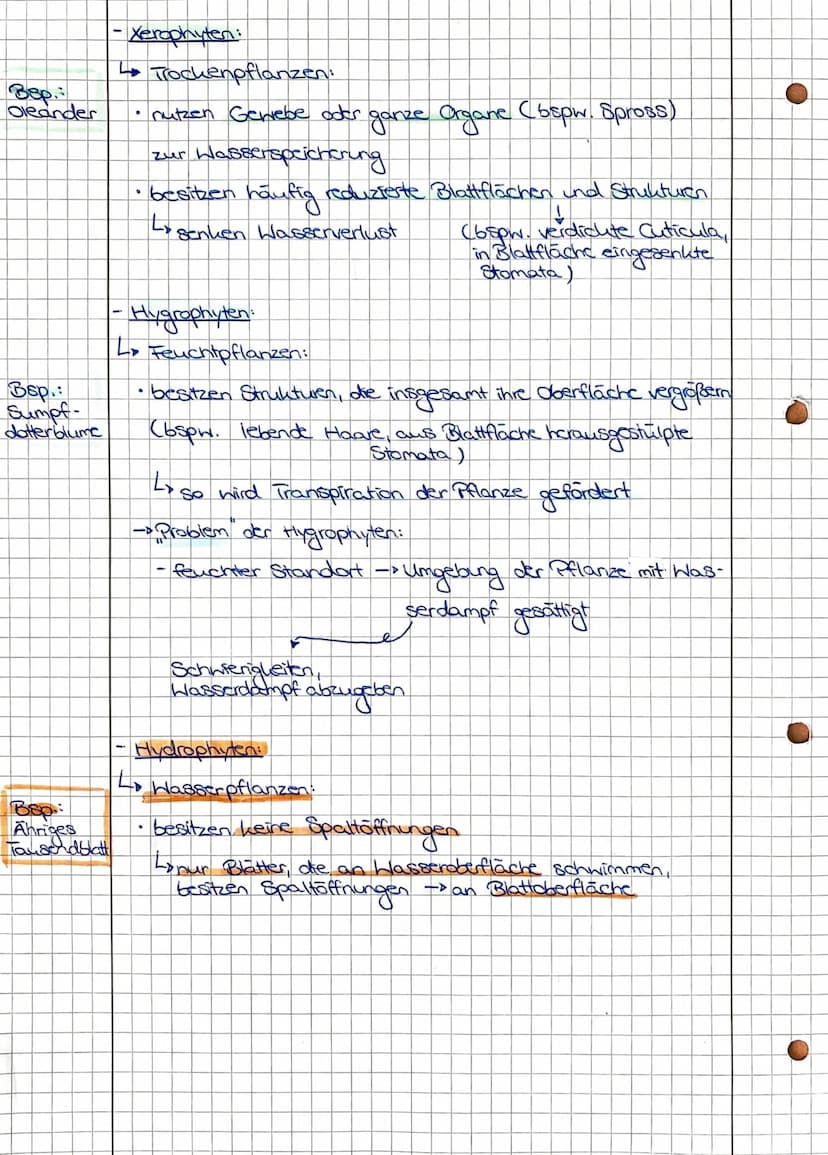 - Xerophyten:
↳ Trockenpflanzen:
Bsp.:
Oleander
· nutzen Gewebe oder ganze Organe (bspw. Spross)
zur Wasserspeicherung
· besitzen häufig reduzierte Blattflächen und Strukturen
↳ senken Wasserverlust
(bspw. verdickte Cuticula,
in Blattfläche eingesenkte
Stomata)
- Hygrophyten:
↳ Feuchtpflanzen:
Bsp.:
Sumpf-
dotterblume
· besitzen Strukturen, die insgesamt ihre Oberfläche vergrößern
(bspw. lebende Haare, aus Blattfläche herausgestülpte
Stomata)
↳ so wird Transpiration der Pflanze gefördert
→ „Problem" der Hygrophyten:
- feuchter Standort → Umgebung der Pflanze mit Was-
serdampf gesättigt
Schwierigkeiten,
Wasserdampf abzugeben
- Hydrophyten:
↳ Wasserpflanzen:
Bsp.:
Ähriges
Tausendblatt
· besitzen keine Spaltöffnungen
↳ nur Blätter, die an Wasseroberfläche schwimmen,
besitzen Spaltöffnungen → an Blattoberfläche